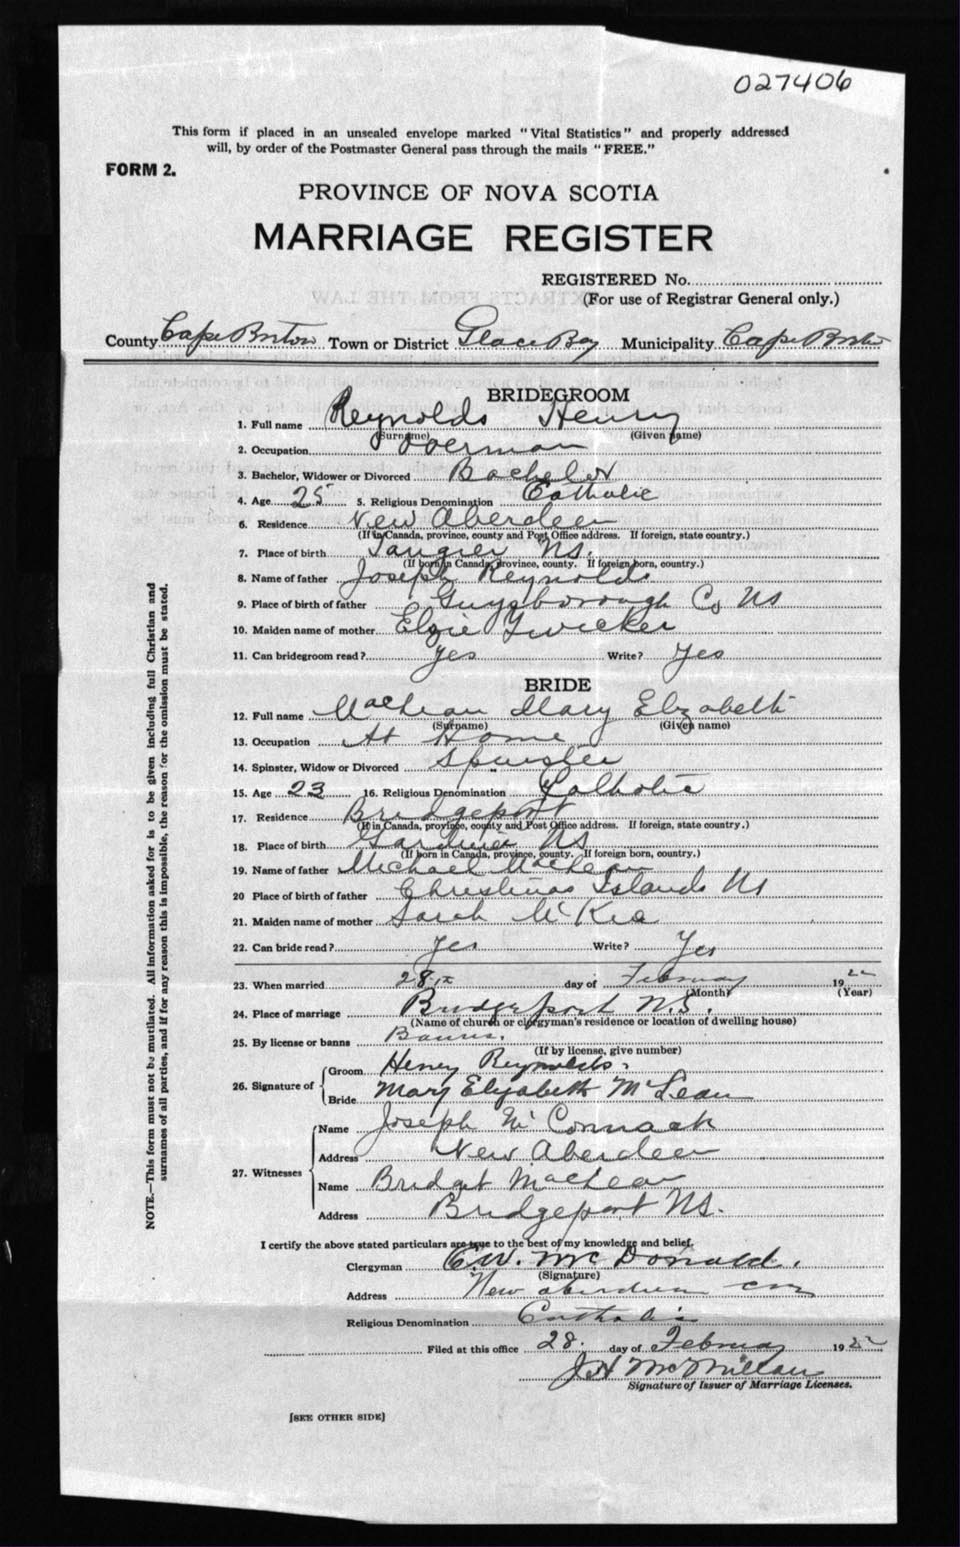 027406
This form if placed in an unsealed envelope marked "Vital Statistics" and properly addressed
will, by order of the Postmaster General pass through the mails "FREE."
FORM 2.
PROVINCE OF NOVA SCOTIA
MARRIAGE REGISTER
REGISTERED No.
(For use of Registrar General only.)
County Cape Breton Town or District Glace Bay Municipality Cape Breton
BRIDEGROOM
1. Full name Reynolds Henry
(Surname) (Given name)
2. Occupation
3. Bachelor, Widower or Divorced Bachelor
4. Age 25 5. Religious Denomination Catholic
6. Residence New Aberdeen
(If in Canada, province, county and Post Office address. If foreign, state country.)
7. Place of birth Tangier NS.
(If born in Canada, province, county. If foreign born, country.)
8. Name of father Joseph Reynolds
9. Place of birth of father Guysborough Co NS
10. Maiden name of mother Elzie Zwicker
11. Can bridegroom read? Yes Write? Yes
BRIDE
12. Full name MacLean Mary Elzabeth
(Surname) (Given name)
13. Occupation At Home
14. Spinster, Widow or Divorced Spinster
15. Age 23 16. Religious Denomination Catholic
17. Residence Bridgeport
(If in Canada, province, county and Post Office address. If foreign, state country.)
18. Place of birth Gardiner NS
(If born in Canada, province, county. If foreign born, country.)
19. Name of father Michael MacLean
20 Place of birth of father Christmas Islands NS
21. Maiden name of mother Sarah
22. Can bride read? Yes Write? Yes
23. When married 28 day of February 1922
(Month) (Year)
24. Place of marriage Bridgeport N.S.
(Name of church or clergyman's residence or location of dwelling house)
25. By license or banns Banns.
(If by license, give number)
26. Signature of
Groom Henry Reynolds.
Bride Mary Elizabeth McLean
27. Witnesses
Name Joseph McCormack
Address New Aberdeen
Name Bridget MacLean
Address Bridgeport NS.
I certify the above stated particulars are true to the best of my knowledge and belief.
Clergyman C.W. McDonald.
(Signature)
Address New aberdeen
Religious Denomination Catholic
Filed at this office 28. day of February 1922
J H McMillan
Signature of Issuer of Marriage Licenses.
[SEE OTHER SIDE]
NOTE.—This form must not be mutilated. All information asked for is to be given including full Christian and
surnames of all parties, and if for any reason this is impossible, the reason for the omission must be stated.